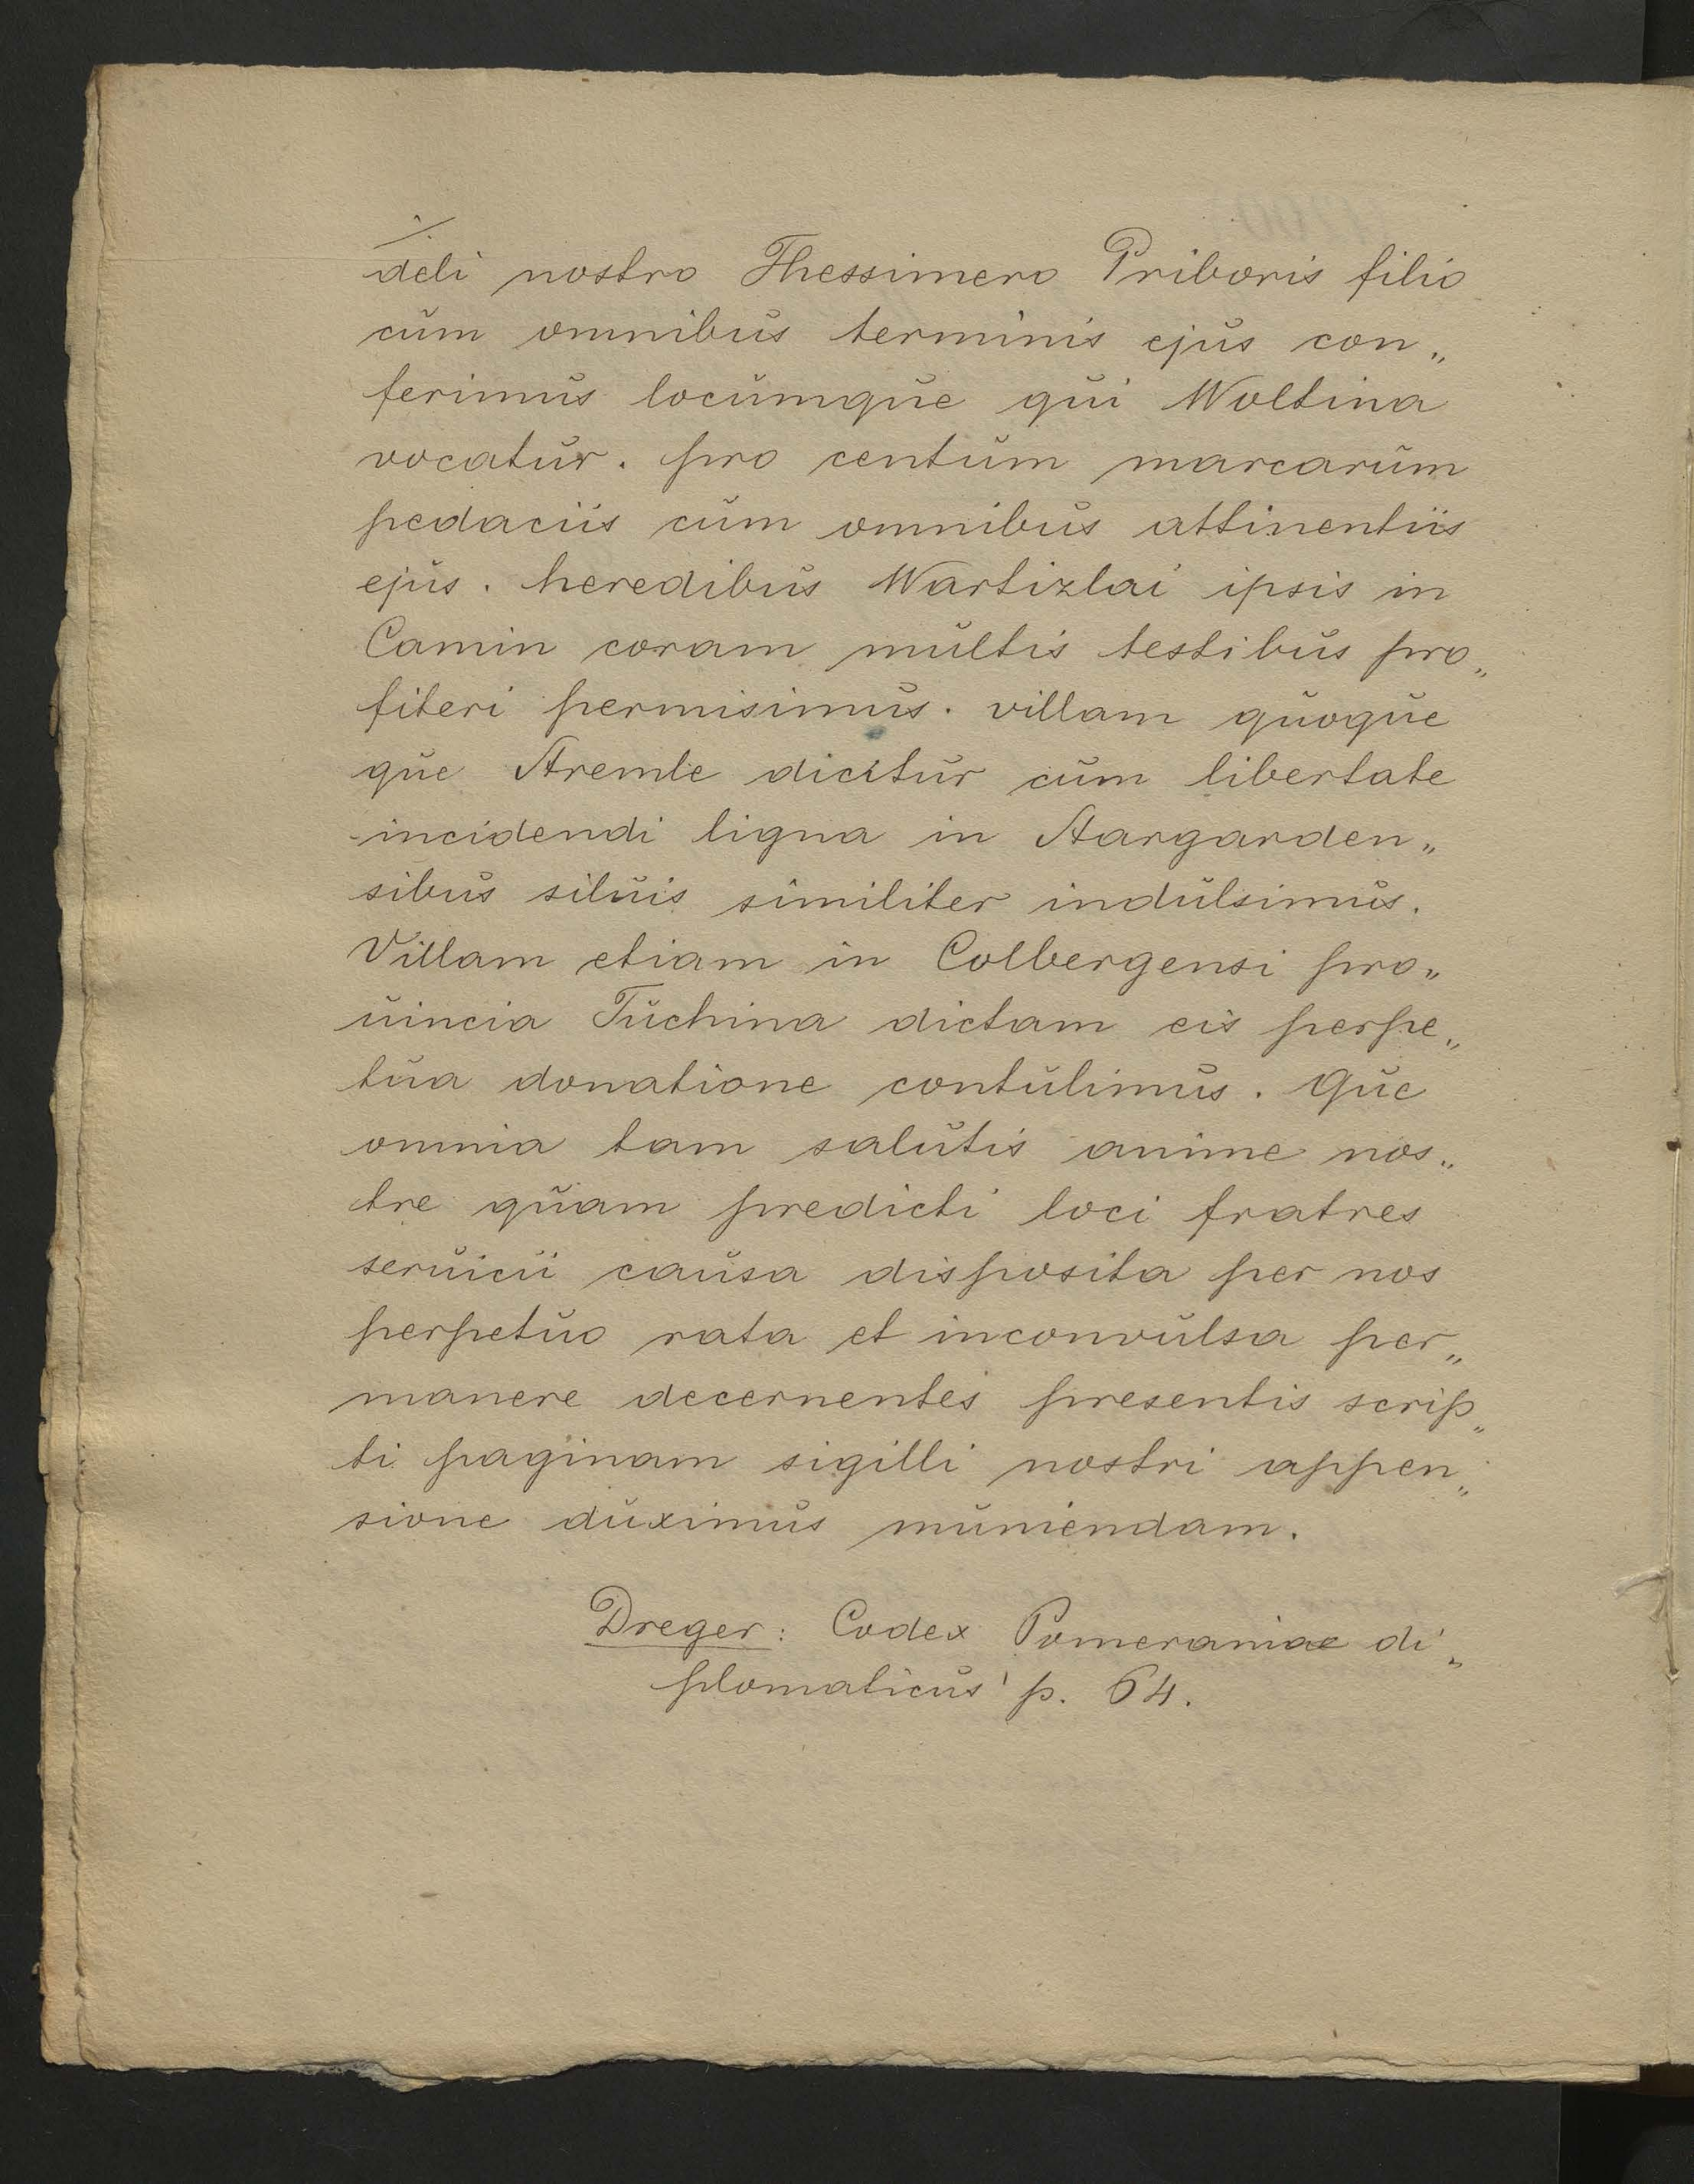 deli nostro Thessimero Priboris filio
cum omnibus terminis ejus con„
ferimus locumque qui Woltina
vocatur. pro centum marcarum
pedaciis cum omnibus attinentiis
ejus. heredibus Wartizlai ipsis in
Camin coram multis testibus pro„
fiteri permisimus. villam quoque
que Stremle dicitur cum libertate
incidendi ligna in Stargarden„
sibus siluis similiter indulsimus.
Villam etiam in Colbergensi pro„
uincia Tuchina dictam eis perpe„
tua donatione contulimus. Que
omnia tam salutis anime nos„
tre quam predicti loci fratres
seruicii causa disposita per nos
perpetuo rata et inconvulsa per„
manere decernentes presentis scrip„
ti paginam sigilli nostri appen„
sione duximus muniendam.
Dreger: Codex Pomeraniae di„
plomaticus' p. 64.